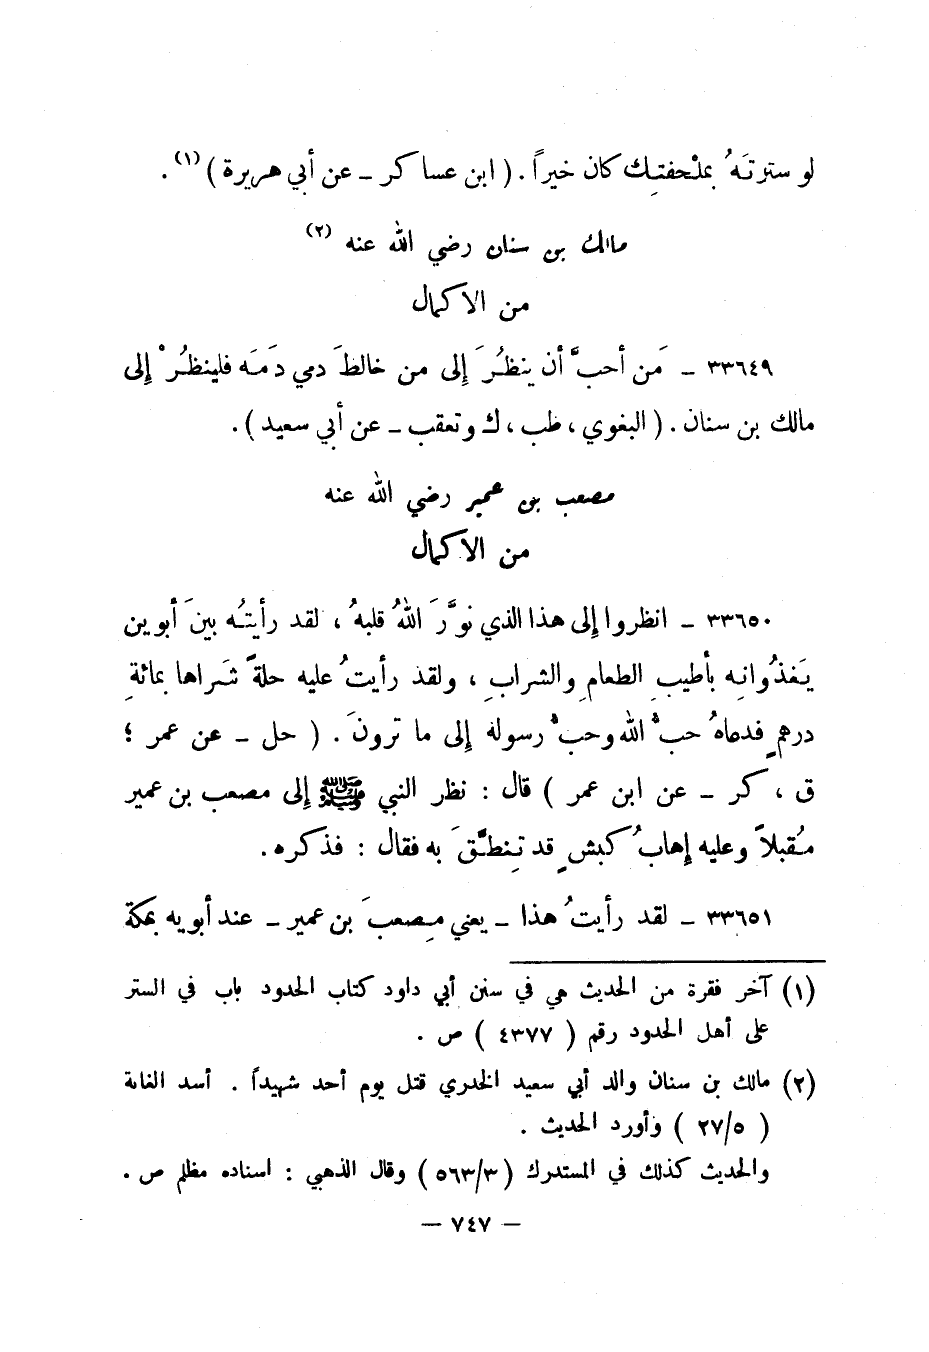 لو سترتَهُ بملْحفتِك كان خيراً . ( ابن عساكر – عن أبي هريرة ) (١) .
مالك بن سنان رضي الله عنه (٢)
من الاكمال
٣٣٦٤٩ – مَن أحبَّ أن ينظُرَ إلى من خالطَ دمي دمَه فلينظُرْ إلى
مالك بن سنان . ( البغوي ، طب ، ك وتعقب – عن أبي سعيد ) .
مصعب بن عمير رضي الله عنه
من الاكمال
٣٣٦٥٠ – انظروا إلى هذا الذي نوَّرَ اللهُ قلبهُ ، لقد رأيتُه بينَ أبوين
يَغذُوانِه بأطيبِ الطعامِ والشرابِ ، ولقد رأيتُ عليه حلةً شَراها بمائةِ
درهمٍ فدعاهُ حبُّ الله وحبُّ رسوله إلى ما ترونَ . ( حل – عن عمر ؛
ق ، كر – عن ابن عمر ) قال : نظر النبي ﷺ إلى مصعب بن عمير
مُقبلاً وعليه إهابُ كبشٍ قد تنِطَّقَ به فقال : فذكره .
٣٣٦٥١ – لقد رأيتُ هذا – يعني مِصعبَ بن عمير – عند أبويه بمكة
(١) آخر فقرة من الحديث هي في سنن أبي داود كتاب الحدود باب في الستر
على أهل الحدود رقم ( ٤٣٧٧ ) ص .
(٢) مالك بن سنان والد أبي سعيد الخدري قتل يوم أحد شهيداً . أسد الغابة
( ٢٧/٥ ) وأورد الحديث .
والحديث كذلك في المستدرك ( ٥٦٣/٣ ) وقال الذهبي : اسناده مظلم ص .
– ٧٤٧ –